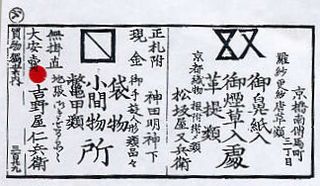 京橋南傳馬町
三丁目
羅紗更紗唐草類
御鼻紙入
御煙草入處
革提類
京都織物
松坂屋八兵衛
神田明神下
正札附
現金
御手遊人形類品々
袋物
小間物所
鼈甲類
地張
無掛直
大安賣
吉野屋仁兵衛
買物獨案内
三百九